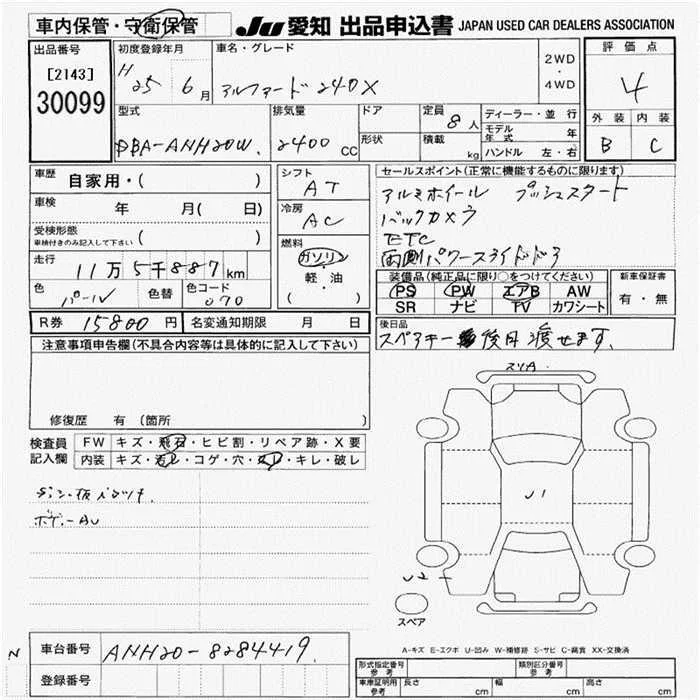 車内保管・守衛保管
JU 愛知 出品申込書 JAPAN USED CAR DEALERS ASSOCIATION
出品番号
[2143]
30099
初度登録年月
H 25 6 月
車名・グレード
アルファード 240X
2WD
・
4WD
評価点
4
外装 内装
B C
型式
DBA-ANH20W
排気量
2400 CC
ドア
形状
定員
8 人
積載
kg
ディーラー・並行
モデル年式 年
ハンドル 左・右
車歴
自家用・( )
車検
年 月( 日)
受検形態
車検付きのみ記入して下さい ( )
走行
11万5千887 km
色
パール
色替
色コード
070
シフト
AT
冷房
AC
燃料
ガソリン
・
軽・油
( )
セールスポイント(正常に機能するものに限ります)
アルミホイール プッシュスタート
バックカメラ
ETC
両側パワースライドドア
装備品(純正品に限り○をつけてください)
PS PW エアB AW
SR ナビ TV カワシート
新車保証書
有・無
R券 15800 円 名変通知期限 月 日
後日品
スペアキー 後日渡せます。
注意事項申告欄(不具合内容等は具体的に記入して下さい)
修復歴 有 (箇所 )
検査員記入欄
FW キズ・飛石・ヒビ割・リペア跡・X要
内装 キズ・汚レ・コゲ・穴・スレ・キレ・破レ
ボデーAU
スリA
U1
U2
スペア
A-キズ E-エクボ U-凹み W-補修跡 S-サビ C-腐食 XX-交換済
N
車台番号 ANH20-8284419
登録番号
形式指定番号 参考
類別区分番号 参考
車庫証明用 参考 長さ cm 幅 cm 高さ cm